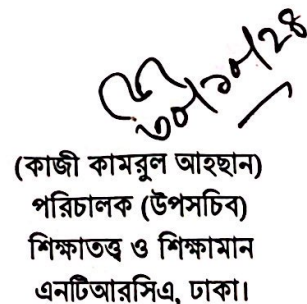 ৩০/১০/২৪
(কাজী কামরুল আহছান)
পরিচালক (উপসচিব)
শিক্ষাতত্ত্ব ও শিক্ষামান
এনটিআরসিএ, ঢাকা।